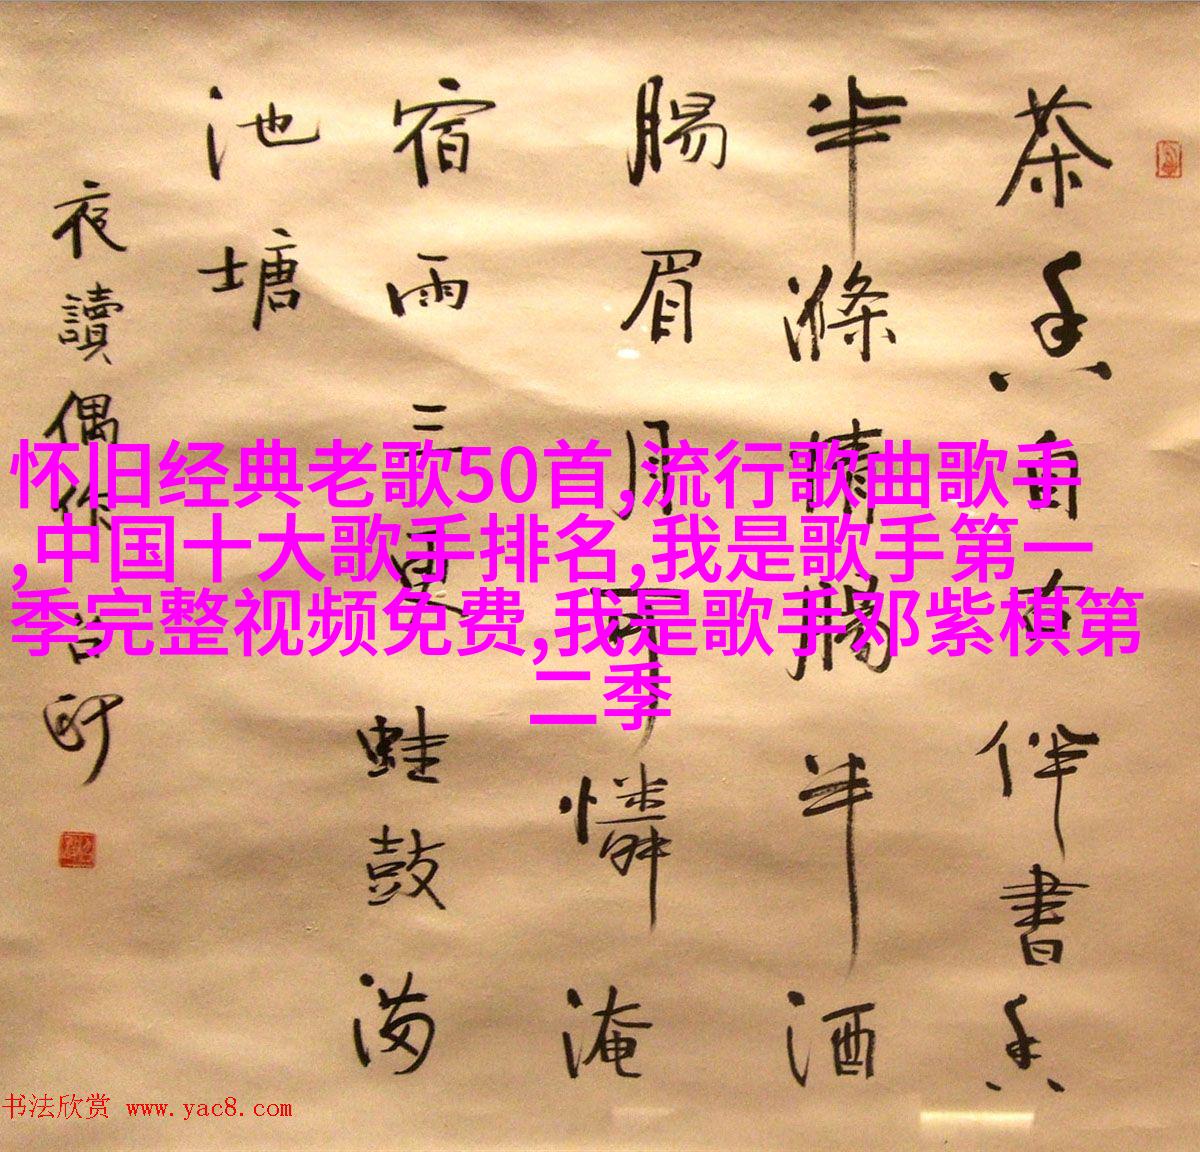 茶香自古伴書香
半滌情腸半酒
腸眉月可憐淹
宿雨三更蛙鼓滿
池塘
夜讀偶作
怀旧经典老歌50首,流行歌曲歌手
,中国十大歌手排名,我是歌手第一
季完整视频免费,我是歌手邓紫棋第
二季
书法欣赏 www.yac8.com